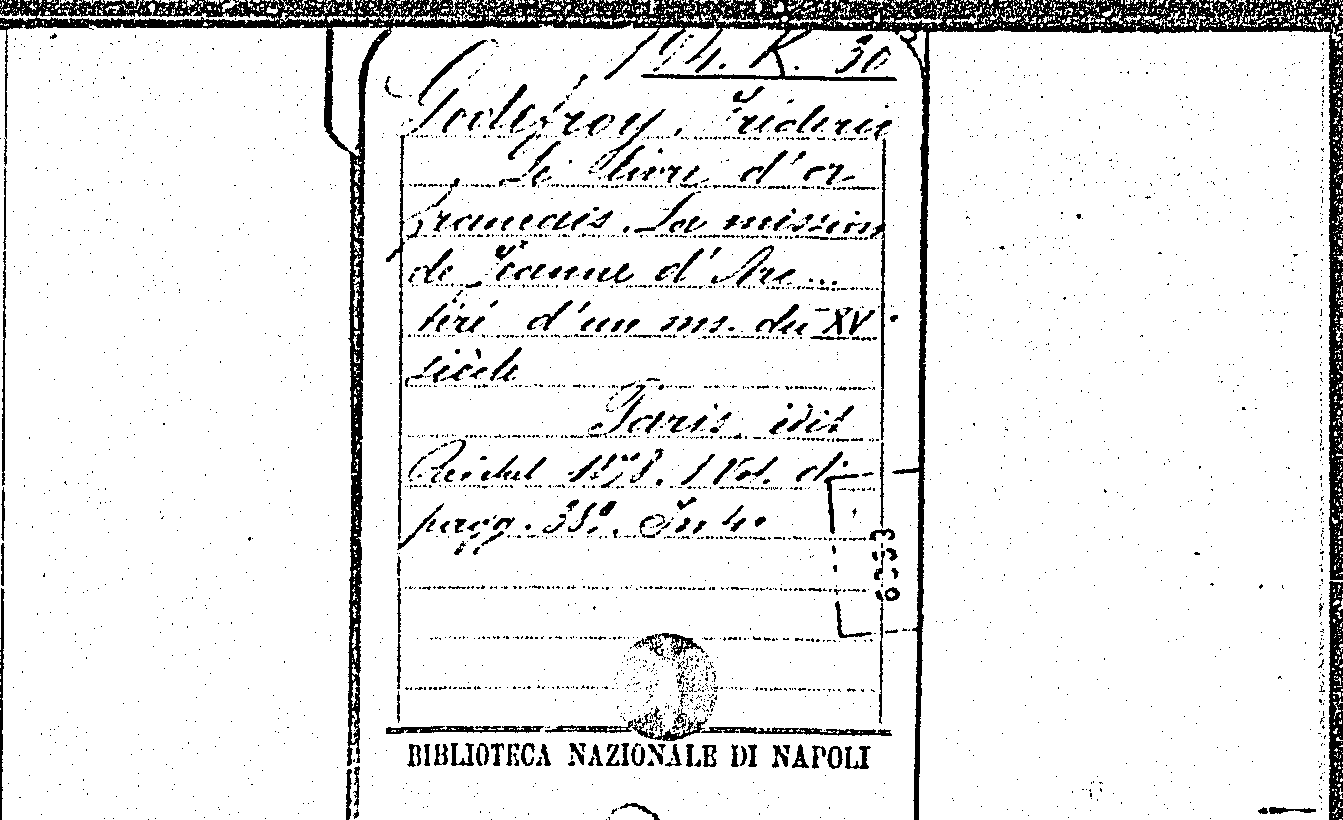 194. K. 30
Godefroy, Fréderic
Le livre d'or
français. La mission
de Jeanne d'Arc...
tiré d'un ms. du XV
siècle
Paris, édit
1878. 1 Vol. di
pagg. In 4º
6353
BIBLIOTECA NAZIONALE DI NAPOLI